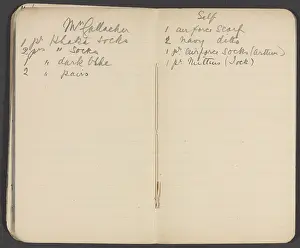 Mrs Gallacher
1 pr Khaki socks
2 prs " socks
1 " dark blue
2 " pairs
Self
1 airforce scarf
2 navy ditto
1 pr airforce socks (Arthur)
1 pr Mittens (Jock)